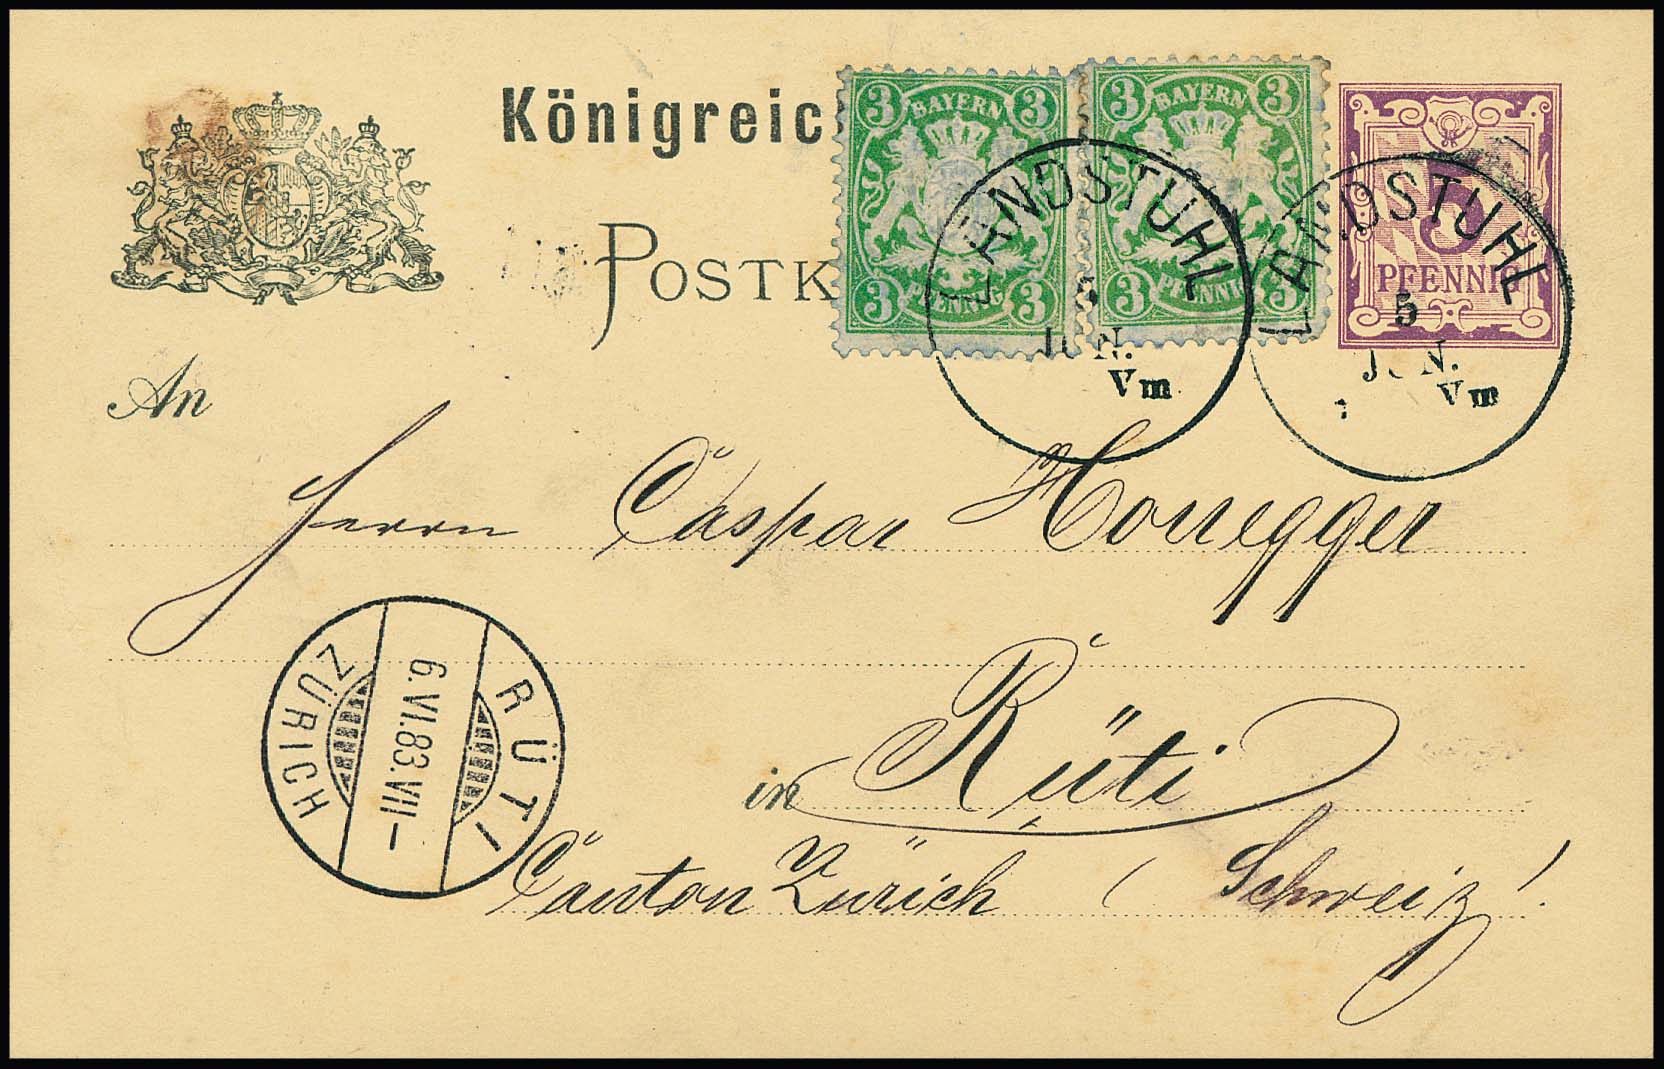 Königreic
POSTK
3 BAYERN 3
3 PFENNIG 3
3 BAYERN 3
3 PFENNIG 3
5
PFENNIG
LANDSTUHL
5
JUN.
Vm
LANDSTUHL
5
JUN.
Vm
An
Herrn Caspar Honegger
in Rüti
Canton Zürich (Schweiz)
RÜTI
6.VI.83.VII–
ZÜRICH